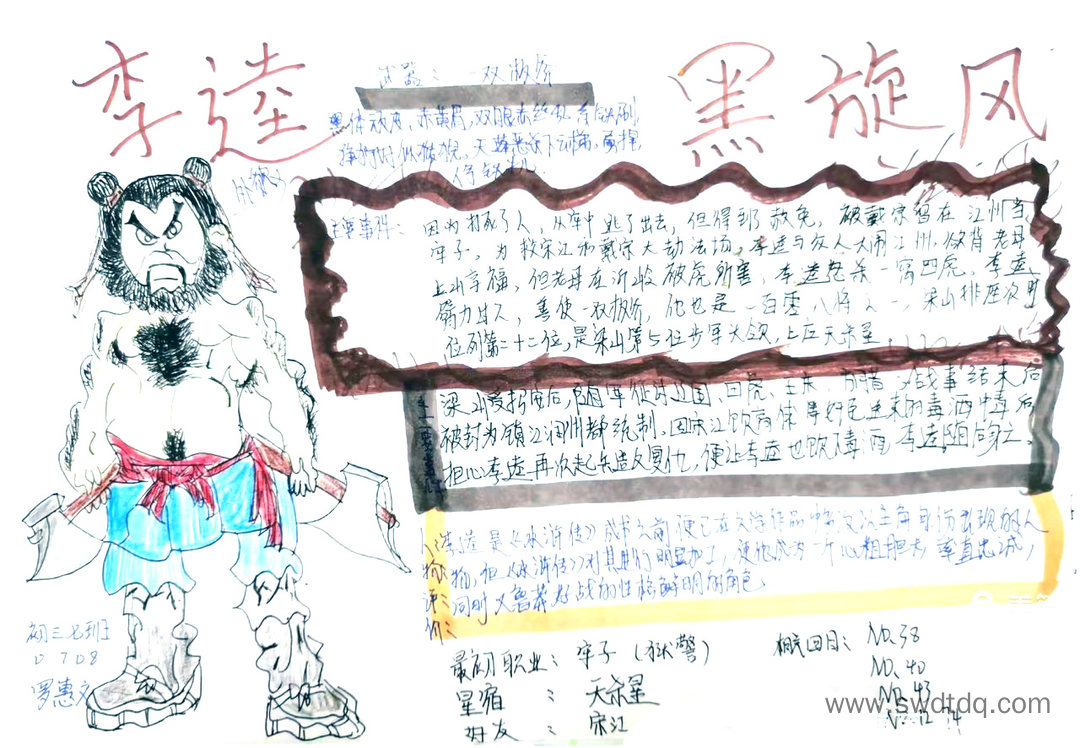 李逵 黑旋风
武器：一双板斧
外貌：
黑体顽皮，赤黄眉，双眼赤丝乱，
主要事件：因为打死了人，从牢中逃了出去，但得到赦免，被戴宗留在江州当
牢子，为救宋江和戴宗大劫法场，李逵与众人大闹江州，做背老母
上山享福，但老母在沂收被虎所害，李逵怒杀一窝四虎，李逵
膂力过人，善使一双板斧，他也是一百零八将之一，梁山排座次时
位列第二十二位，是梁山第5位步军大领，上应天杀星。
梁山受招安后，随军征讨辽国、田虎、王庆、方腊，战事结束后
被封为镇江润州都统制，因宋江饮高俅等奸臣送来的毒酒中毒后
担心李逵再次起兵造反复仇，便让李逵也饮下毒酒，李逵随同
人物评价：
李逵是《水浒传》成书之前便已在文学作品中多次以主角身份出现的人
物，但《水浒传》对其进行明显加工，使他成为一个心粗胆大、率直忠诚，
同时又鲁莽好战的性格鲜明的角色
最初职业：牢子（狱警）
星宿：天杀星
好友：宋江
相关回目：NO.38
NO.40
NO.43
初三七班
0708
罗惠文
www.swdtdq.com